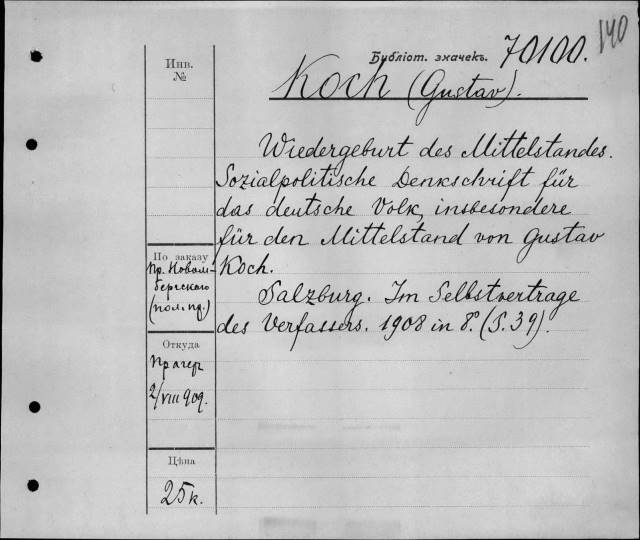 140
Библіот. значекъ. 70100.
Инв.
№
Koch (Gustav).
Wiedergeburt des Mittelstandes.
Sozialpolitische Denkschrift für
das deutsche Volk, insbesondere
für den Mittelstand von Gustav
Koch.
Salzburg. Im Selbstvertrage
des Verfassers. 1908 in 8º. (S. 39).
По заказу
пр. Новом-
бергскаго
(пол. пд.)
Откуда
Прагеръ
2/VIII 909.
Цѣна
25к.